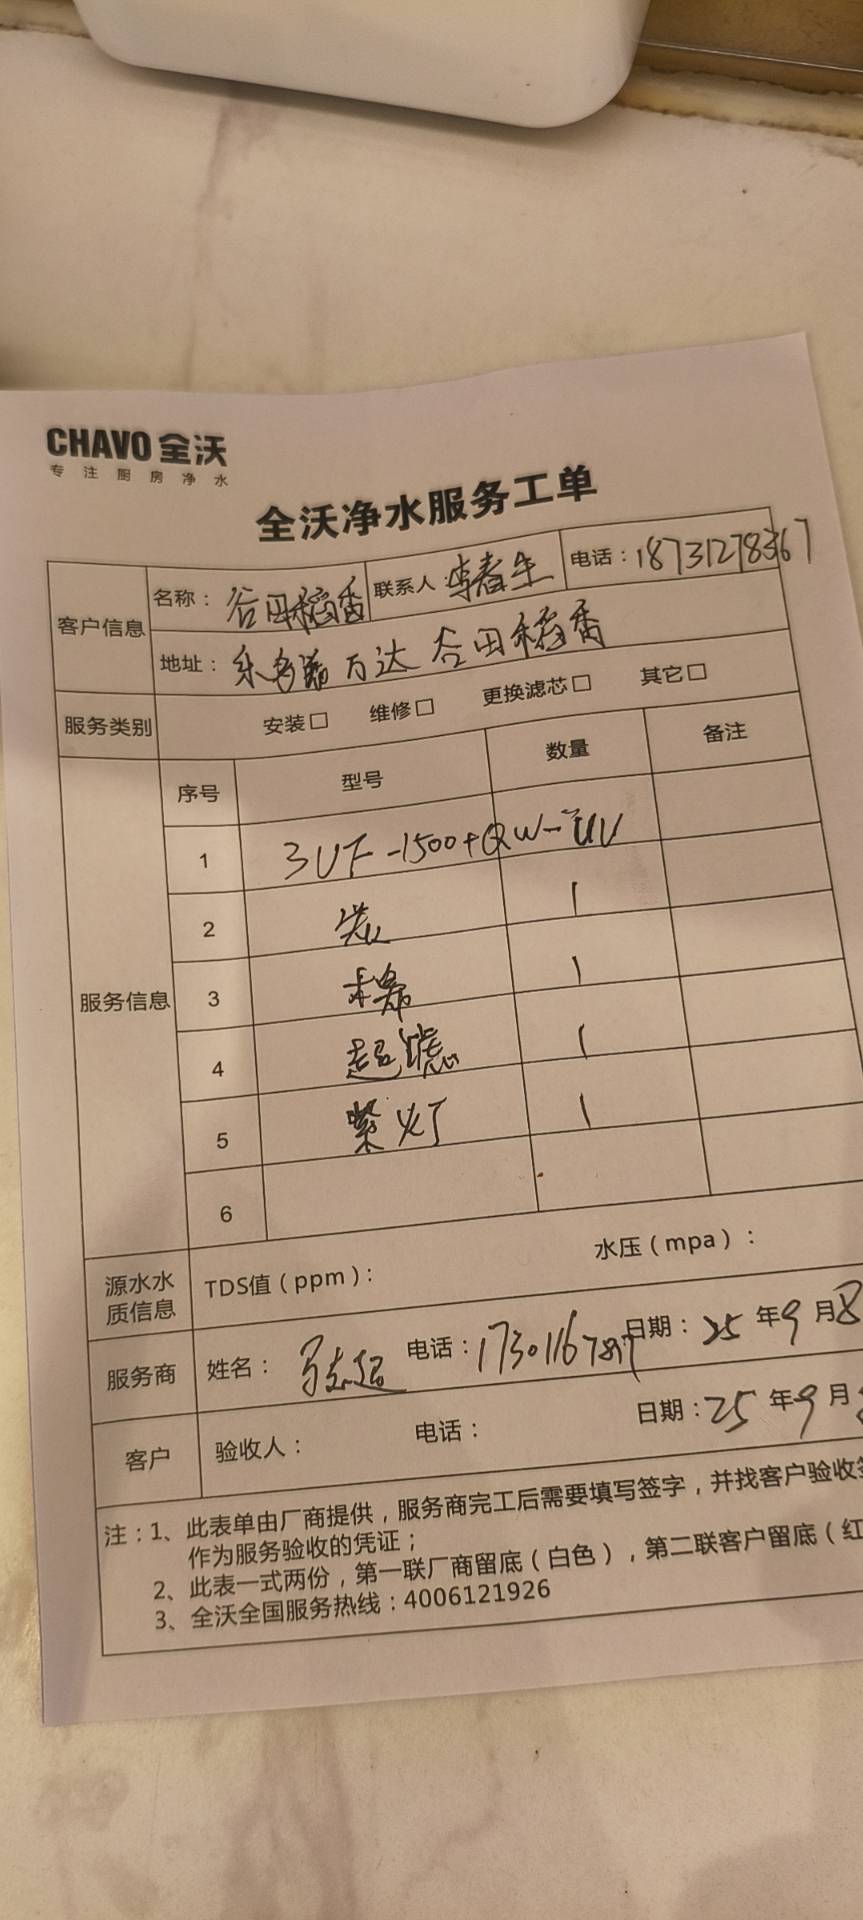 CHAVO 全沃
专注厨房净水
全沃净水服务工单
客户信息 名称：谷田稻香 联系人：李春生 电话：18731278367
地址：万达 谷田稻香
服务类别 安装□ 维修□ 更换滤芯□ 其它□
服务信息 序号 型号 数量 备注
1 3UF-1500+QW-UV
2 炭 1
3 棉 1
4 超滤 1
5 紫灯 1
6
源水水质信息 TDS值（ppm）： 水压（mpa）：
服务商 姓名：马志超 电话：1730116 日期：25年9月8
客户 验收人： 电话： 日期：25年9月
注：1、此表单由厂商提供，服务商完工后需要填写签字，并找客户验收
作为服务验收的凭证；
2、此表一式两份，第一联厂商留底（白色），第二联客户留底（红
3、全沃全国服务热线：4006121926